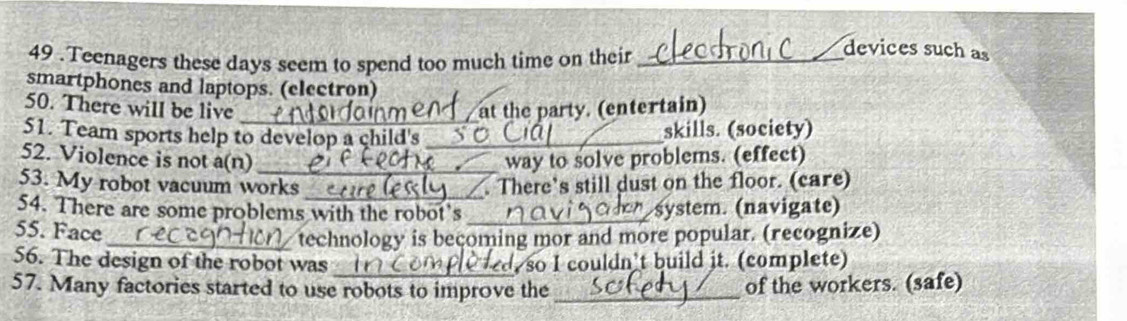 49 .Teenagers these days seem to spend too much time on their electronic devices such as
smartphones and laptops. (electron)
50. There will be live entertainment at the party. (entertain)
51. Team sports help to develop a child's social skills. (society)
52. Violence is not a(n) effective way to solve problems. (effect)
53. My robot vacuum works carelessly. There's still dust on the floor. (care)
54. There are some problems with the robot's navigation system. (navigate)
55. Face recognition technology is becoming mor and more popular. (recognize)
56. The design of the robot was incompleted, so I couldn't build it. (complete)
57. Many factories started to use robots to improve the safety of the workers. (safe)